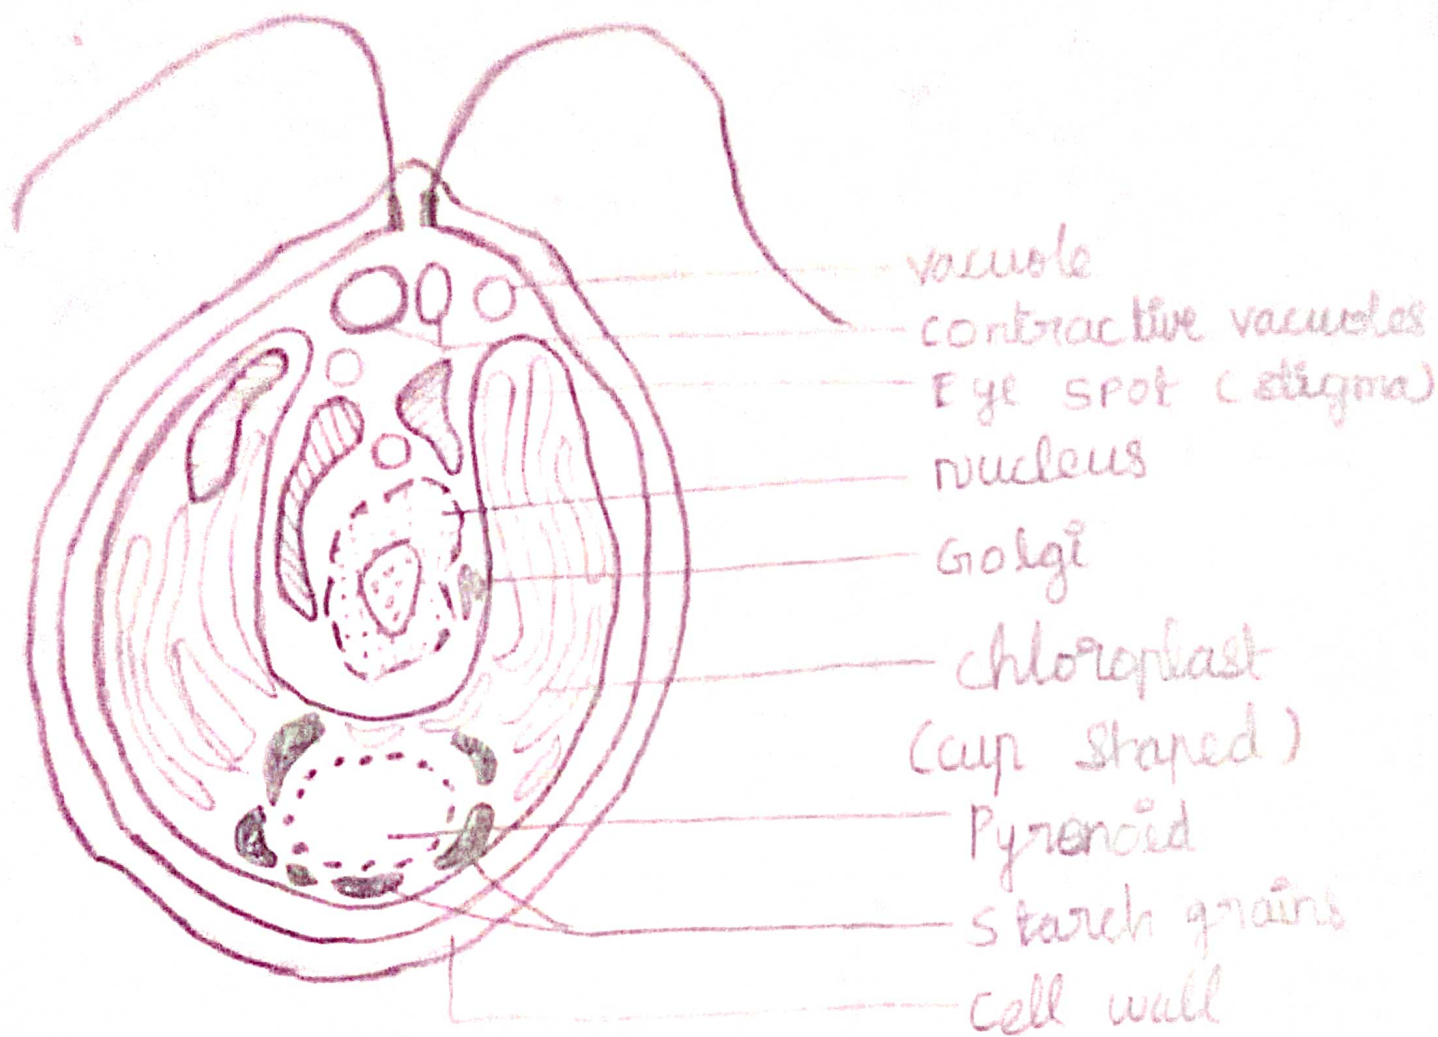 vacuole
contractive vacuoles
Eye spot (stigma)
nucleus
Golgi
chloroplast
(cup shaped)
Pyrenoid
Starch grains
Cell wall